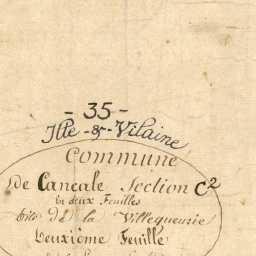 - 35 -
Ille -&- Vilaine
Commune
De Cancale Section C²
En deux Feuilles
dite de la Villequeurie
Deuxième Feuille